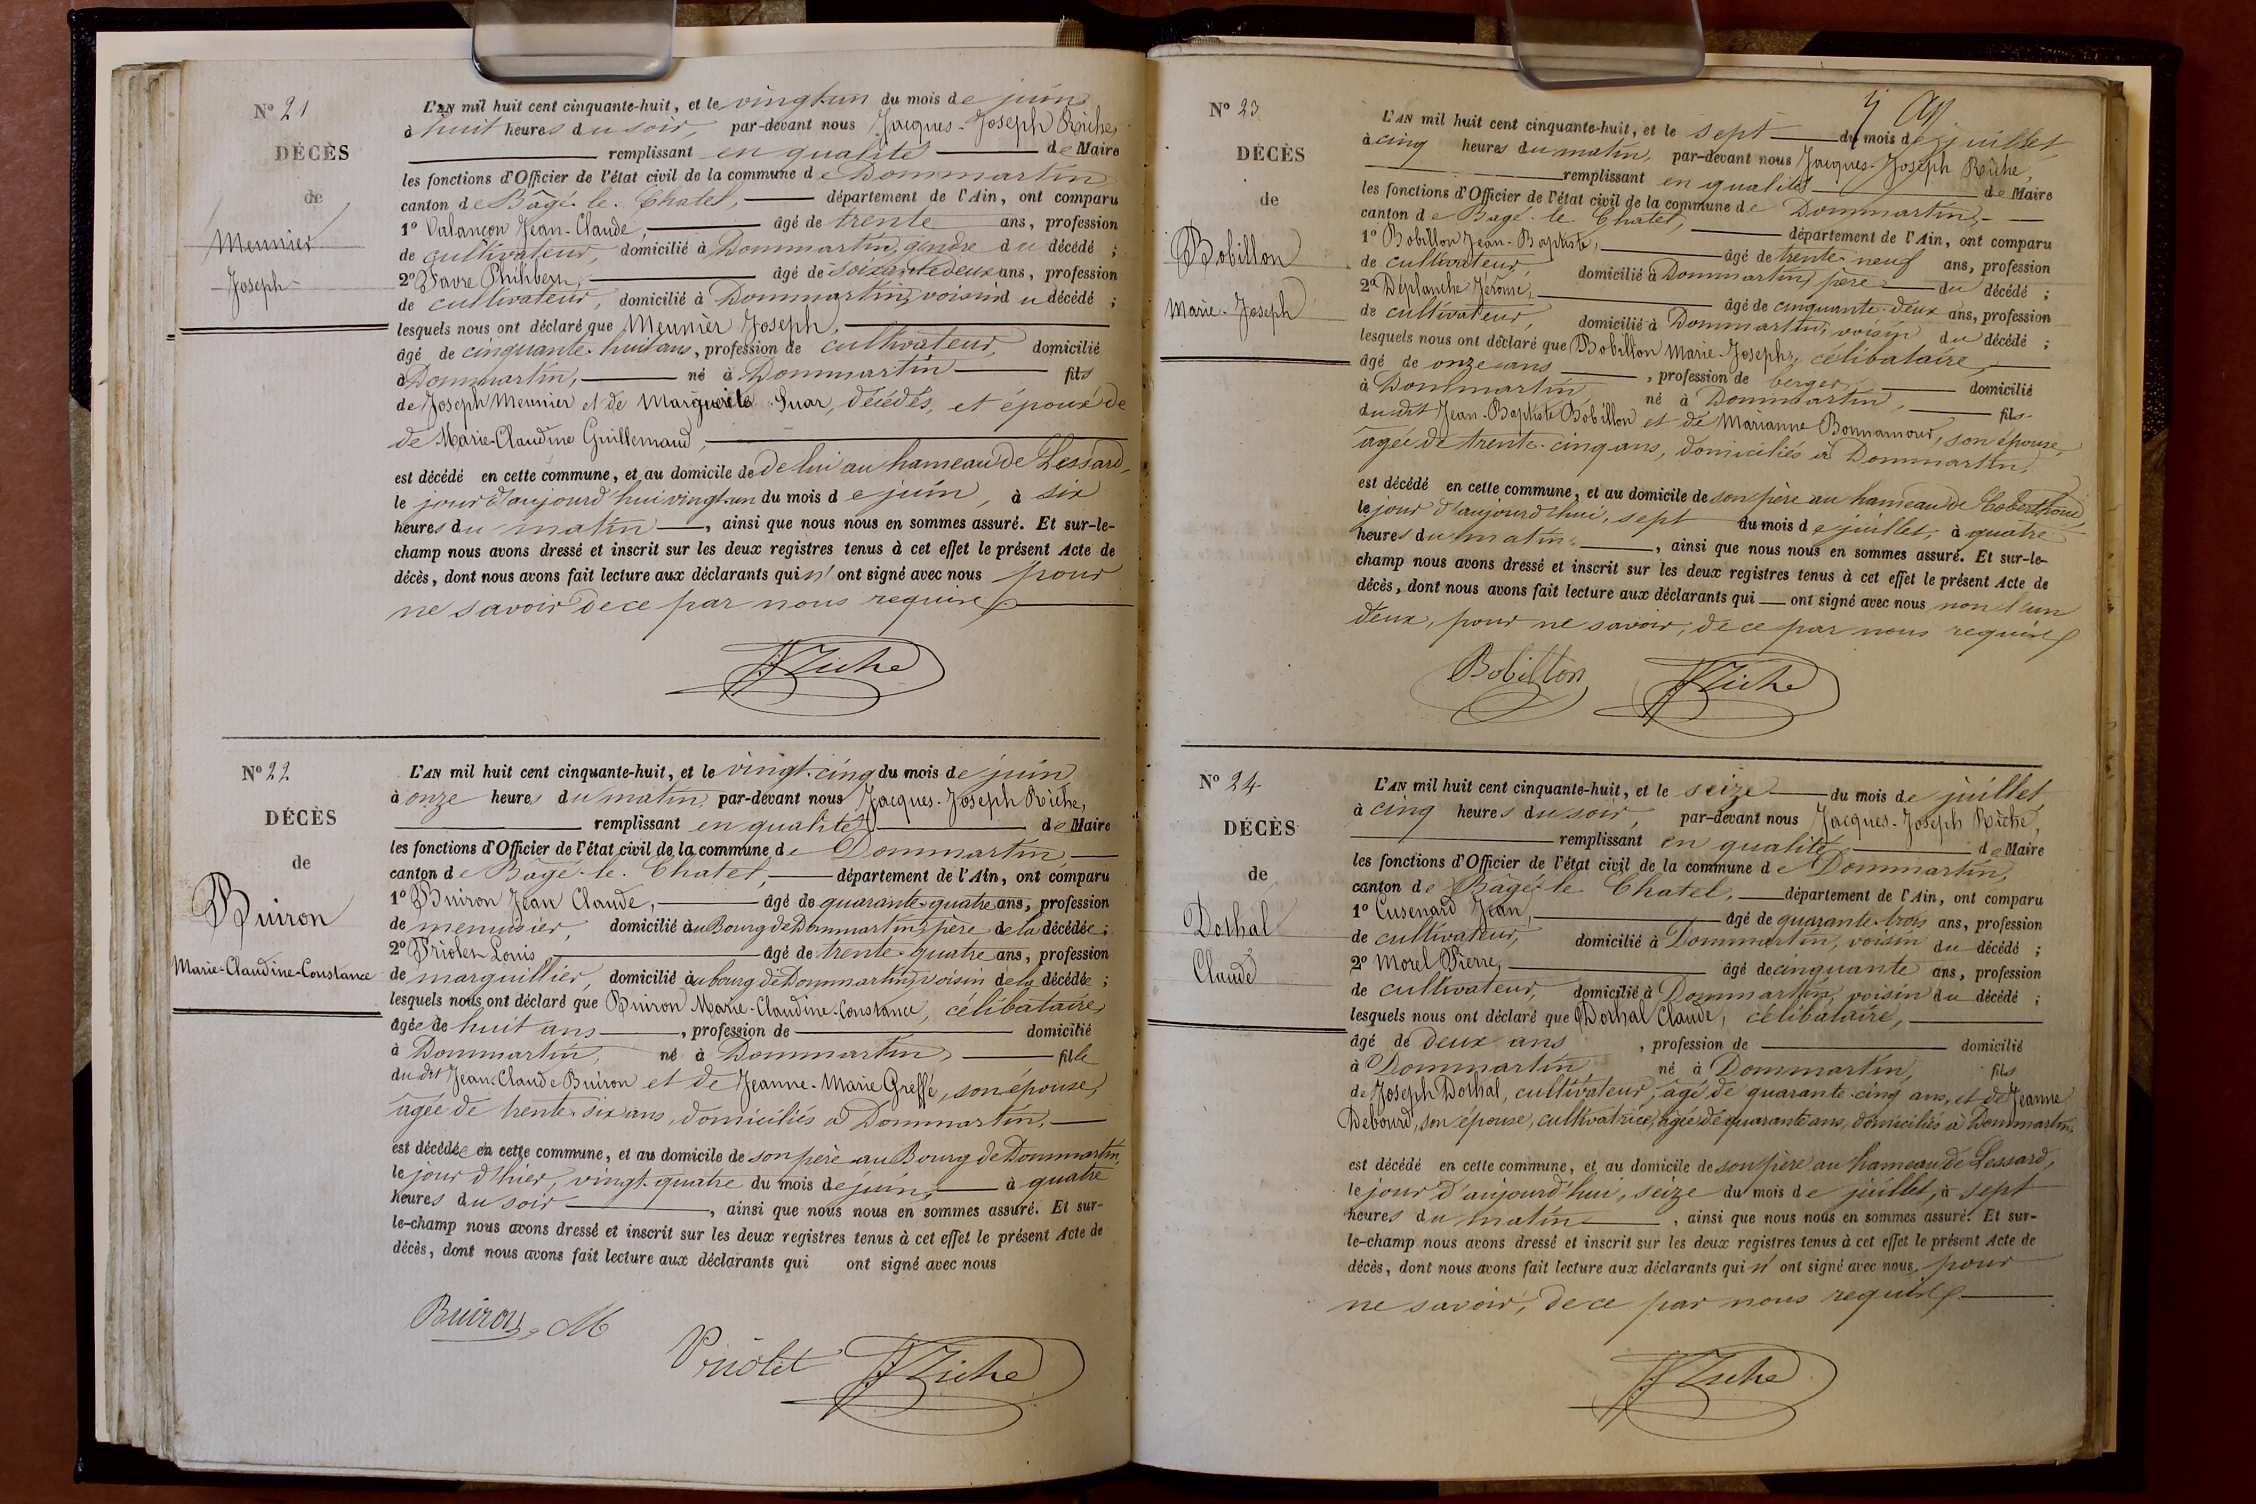 N° 21
DÉCÈS
de
Meunier
Joseph
L'AN mil huit cent cinquante-huit, et le vingt-un du mois de juin
à huit heures du soir, par-devant nous Jacques-Joseph Riche,
remplissant en qualité de Maire
les fonctions d'Officier de l'état civil de la commune de Dommartin
canton de Bâgé-le-Chatel, département de l'Ain, ont comparu
1° Valançon Jean-Claude, âgé de trente ans, profession
de cultivateur, domicilié à Dommartin, gendre du décédé ;
2° Favre Philibert, âgé de soixante deux ans, profession
de cultivateur, domicilié à Dommartin, voisin du décédé ;
lesquels nous ont déclaré que Meunier Joseph,
âgé de cinquante-huit ans, profession de cultivateur, domicilié
à Dommartin, né à Dommartin fils
de Joseph Meunier et de Marguerite Suar, décédés, et époux de
de Marie-Claudine Guillemaud,
est décédé en cette commune, et au domicile de de lui au hameau de Lessard,
le jour d'aujourd'hui vingt-un du mois de juin, à six
heures du matin, ainsi que nous nous en sommes assuré. Et sur-le-
champ nous avons dressé et inscrit sur les deux registres tenus à cet effet le présent Acte de
décès, dont nous avons fait lecture aux déclarants qui n'ont signé avec nous pour
ne savoir de ce par nous requis
JJ Riche
N° 22
DÉCÈS
de
Buiron
Marie-Claudine-Constance
L'AN mil huit cent cinquante-huit, et le vingt-cinq du mois de juin
à onze heures du matin, par-devant nous Jacques-Joseph Riche,
remplissant en qualité de Maire
les fonctions d'Officier de l'état civil de la commune de Dommartin,
canton de Bâgé-le-Chatel, département de l'Ain, ont comparu
1° Buiron Jean Claude, âgé de quarante-quatre ans, profession
de menuisier, domicilié au Bourg de Dommartin, père de la décédée ;
2° Priolet Louis, âgé de trente-quatre ans, profession
de marguillier, domicilié au bourg de Dommartin, voisin de la décédée ;
lesquels nous ont déclaré que Buiron Marie-Claudine-Constance, célibataire,
âgée de huit ans, profession de domicilié
à Dommartin, né à Dommartin, fille
du dit Jean-Claude Buiron et de Jeanne-Marie Greffé, son épouse,
âgée de trente-six ans, domiciliés à Dommartin,
est décédée en cette commune, et au domicile de son père au Bourg de Dommartin
le jour d'hier, vingt-quatre du mois de juin, à quatre
heures du soir, ainsi que nous nous en sommes assuré. Et sur-
le-champ nous avons dressé et inscrit sur les deux registres tenus à cet effet le présent Acte de
décès, dont nous avons fait lecture aux déclarants qui ont signé avec nous
Buiron M
Priolet JJ Riche
N° 23
DÉCÈS
de
Bobillon
Marie-Joseph
L'AN mil huit cent cinquante-huit, et le sept du mois de juillet
à cinq heures du matin, par-devant nous Jacques-Joseph Riche,
remplissant en qualité de Maire
les fonctions d'Officier de l'état civil de la commune de Dommartin,
canton de Bâgé-le-Chatel, département de l'Ain, ont comparu
1° Bobillon Jean-Baptiste, âgé de trente-neuf ans, profession
de cultivateur, domicilié à Dommartin, père du décédé ;
2° Déplanche Jérôme, âgé de cinquante-deux ans, profession
de cultivateur, domicilié à Dommartin, voisin du décédé ;
lesquels nous ont déclaré que Bobillon Marie-Joseph, célibataire,
âgé de onze ans, profession de berger, domicilié
à Dommartin, né à Dommartin, fils
du dit Jean-Baptiste Bobillon et de Marianne Bonnamour, son épouse,
âgée de trente-cinq ans, domiciliés à Dommartin,
est décédé en cette commune, et au domicile de son père au hameau de
le jour d'aujourd'hui, sept du mois de juillet, à quatre
heures du matin, ainsi que nous nous en sommes assuré. Et sur-le-
champ nous avons dressé et inscrit sur les deux registres tenus à cet effet le présent Acte de
décès, dont nous avons fait lecture aux déclarants qui ont signé avec nous non l'un
deux, pour ne savoir, de ce par nous requis
Bobillon JJ Riche
N° 24
DÉCÈS
de
Dothal
Claude
L'AN mil huit cent cinquante-huit, et le seize du mois de juillet
à cinq heures du soir, par-devant nous Jacques-Joseph Riche,
remplissant en qualité de Maire
les fonctions d'Officier de l'état civil de la commune de Dommartin,
canton de Bâgé-le-Chatel, département de l'Ain, ont comparu
1° Cusenard Jean, âgé de quarante-trois ans, profession
de cultivateur, domicilié à Dommartin, voisin du décédé ;
2° Morel Pierre, âgé de cinquante ans, profession
de cultivateur, domicilié à Dommartin, voisin du décédé ;
lesquels nous ont déclaré que Dothal Claude, célibataire,
âgé de deux ans, profession de domicilié
à Dommartin, né à Dommartin, fils
de Joseph Dothal, cultivateur, âgé de quarante-cinq ans, et de Jeanne
Debourd, son épouse, cultivatrice, âgée de quarante ans, domiciliés à Dommartin,
est décédé en cette commune, et au domicile de son père au hameau de Lessard,
le jour d'aujourd'hui, seize du mois de juillet, à sept
heures du matin, ainsi que nous nous en sommes assuré. Et sur-
le-champ nous avons dressé et inscrit sur les deux registres tenus à cet effet le présent Acte de
décès, dont nous avons fait lecture aux déclarants qui n'ont signé avec nous, pour
ne savoir, de ce par nous requis
JJ Riche